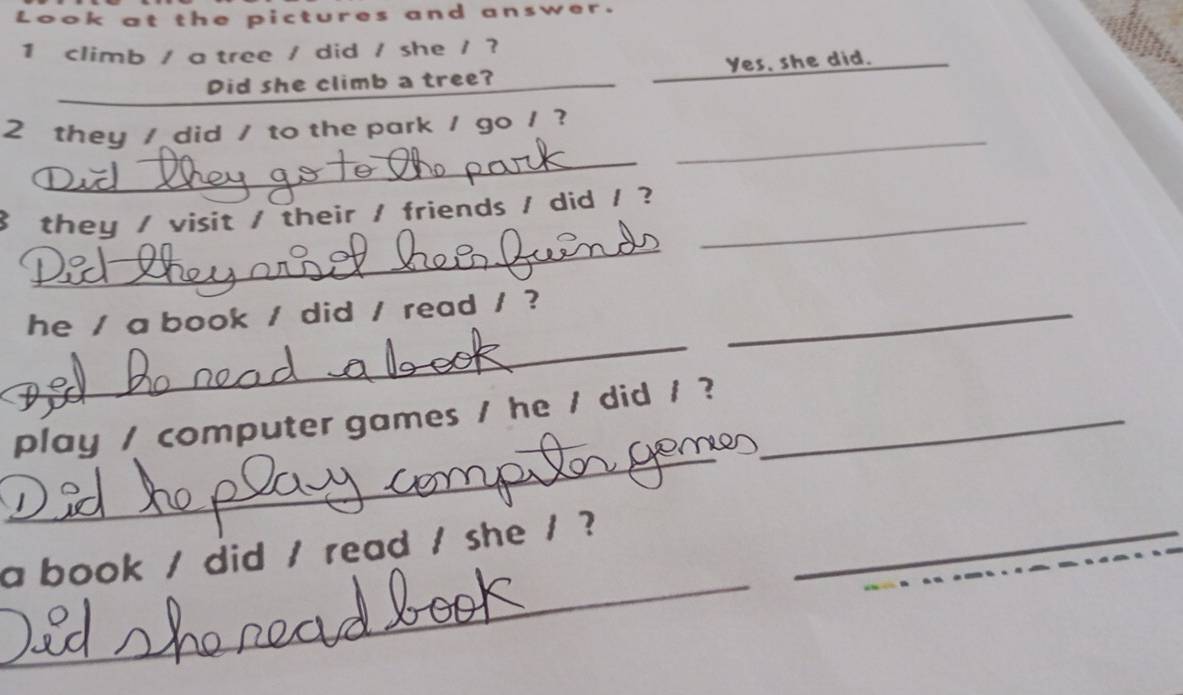 Look at the pictures and answer.
1 climb / a tree / did / she / ?
Did she climb a tree? Yes, she did.
2 they / did / to the park / go / ?
Did they go to the park
3 they / visit / their / friends / did / ?
Did they visit heir friends
he / a book / did / read / ?
Did he read a book
play / computer games / he / did / ?
Did he play computer games
a book / did / read / she / ?
Did she read book